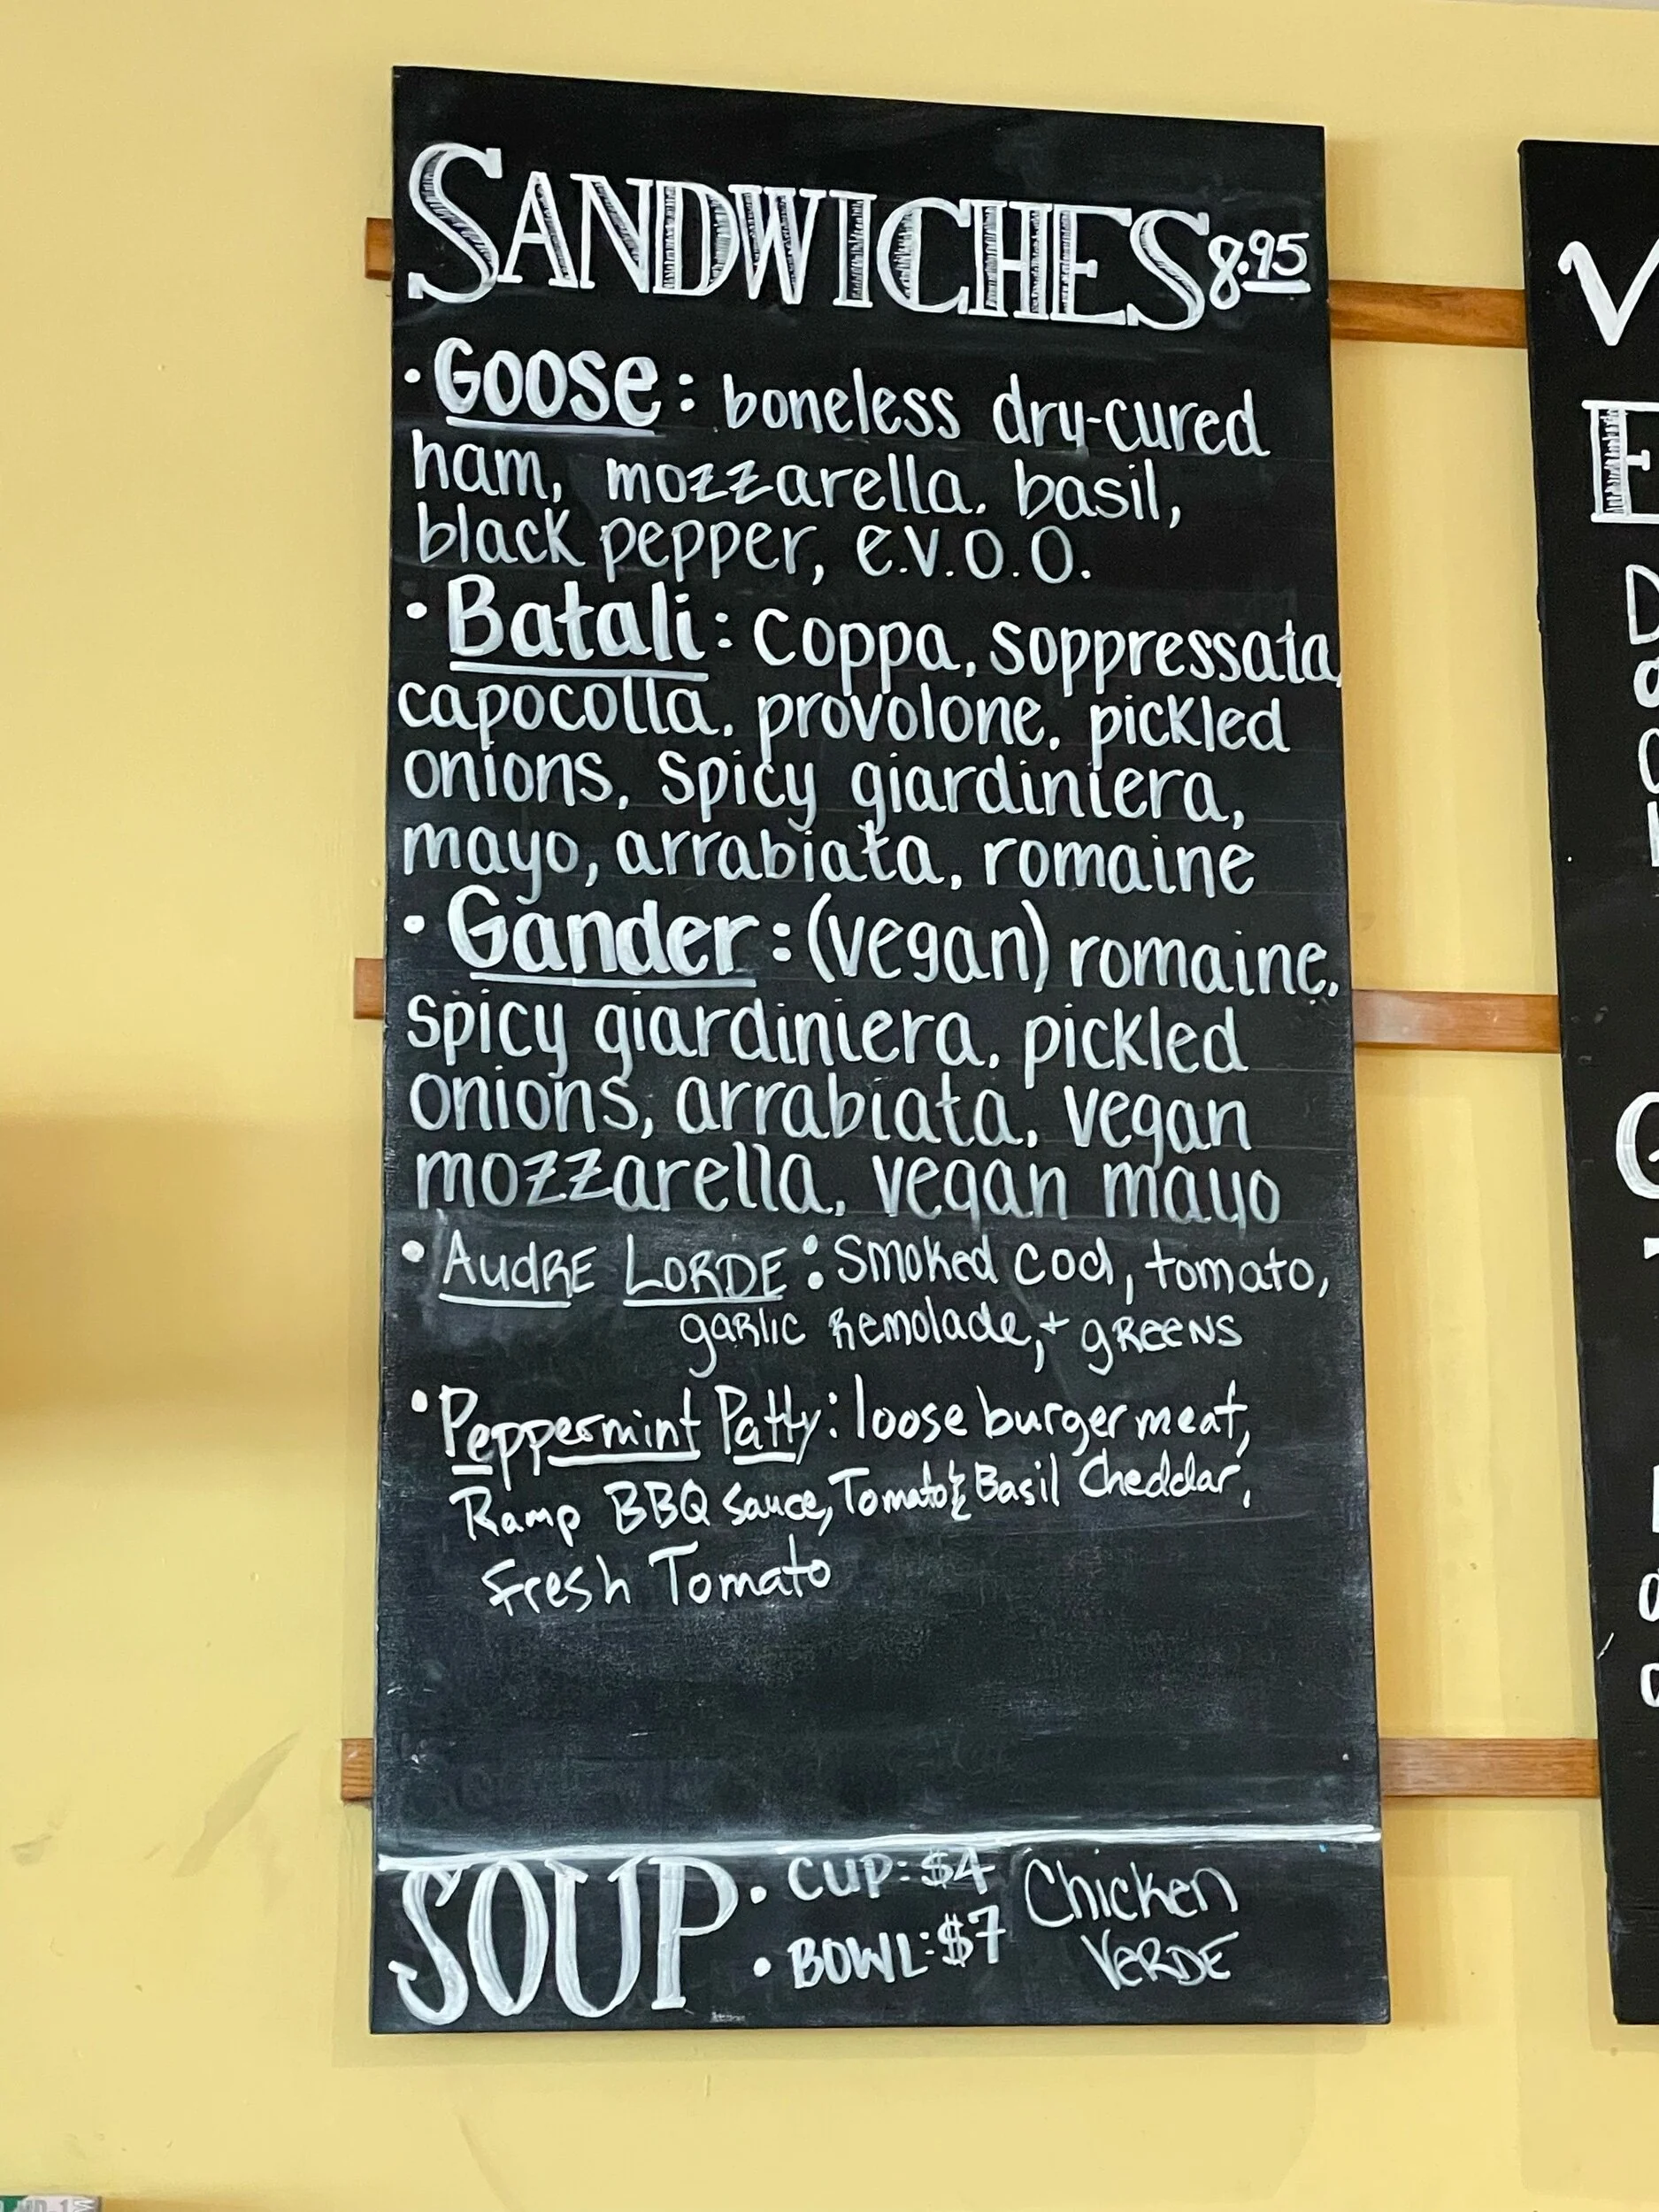 SANDWICHES 8.95
• Goose: boneless dry-cured
ham, mozzarella. basil,
black pepper, e.v.o.o.
• Batali: coppa, soppressata,
capocolla, provolone, pickled
onions, spicy giardiniera,
mayo, arrabiata, romaine
• Gander: (vegan) romaine,
spicy giardiniera, pickled
onions, arrabiata, vegan
mozzarella, vegan mayo
• AUDRE LORDE: Smoked cod, tomato,
garlic Remolade, + greens
• Peppermint Patty: loose burger meat,
Ramp BBQ sauce, Tomato & Basil Cheddar,
Fresh Tomato
SOUP • CUP: $4 Chicken
• BOWL: $7 VERDE